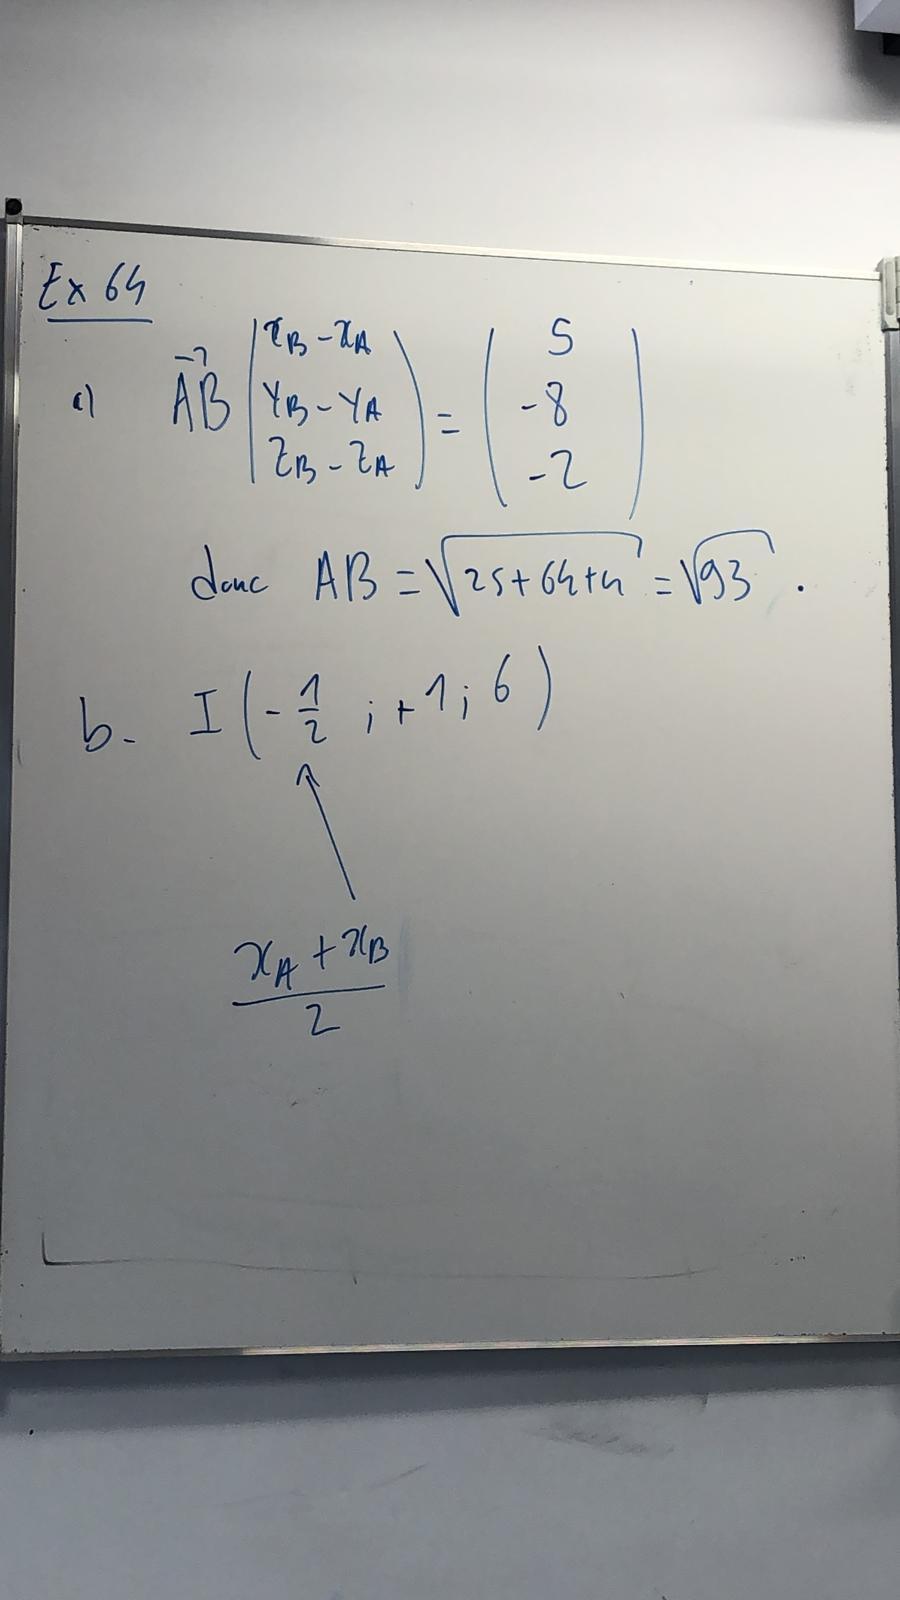 Ex 64
a) →AB (x_B - x_A / y_B - y_A / z_B - z_A) = (5 / -8 / -2)
donc AB = √(25+64+4) = √93 .
b. I (-1/2 ; +1 ; 6)
(x_A + x_B)/2